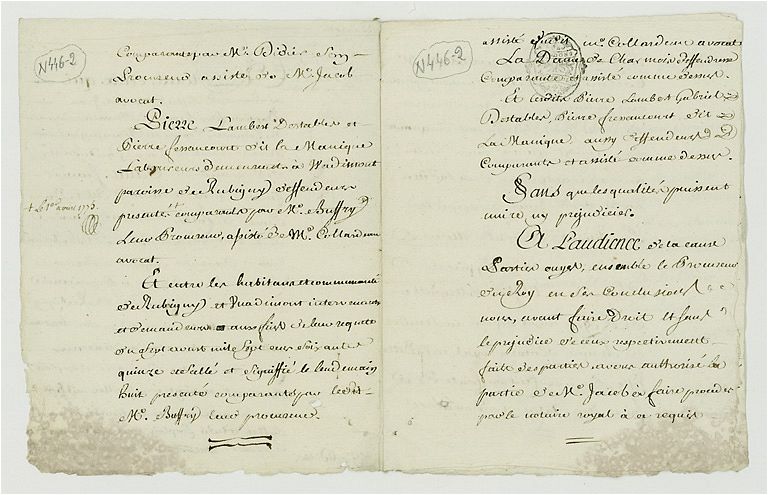 N446-2
Comparants par Me. Didier Seny
Procureur assisté de Me. Jacob
avocat.
Pierre Lambert Destables et
Pierre Fressancourt dit la Manique
Laboureurs demeurants à Wadimont
paroisse de Rubigny deffendeurs
presents et comparants par Me. Buffry
Leur Procureur, assisté de Me. Collardeau
avocat.
+ Le 1er aoust 1775.
Et entre les habitans et communauté
de Rubigny et Wadimont intervenans
et demandeurs aux fins de leur requette
du sept aoust mil sept cent soixante
quinze scellé et signiffié le lendemain
huit presents comparants par ledit
Me. Buffry leur procureur.
N446-2
assisté dudit me. Collardeau avocat
La Dame de Charmois deffendresse
Comparante et assisté comme dessus.
Et lesdits Pierre Lambert Gabriel
Destables, Pierre fressancourt dit
La Manique aussy deffendeurs
Comparants et assisté comme dessus.
Sans que les qualités puissent
nuire ny prejudicier.
A Laudience de la cause
Parties ouyes, ensemble le Procureur
du Roy en ses Conclusions
nous, avant faire Droit et sans
le prejudice de ceux respectivement
faits des parties, avons authorisé la
partie de Me. Jacob à faire proceder
par le notaire royal à ce requis